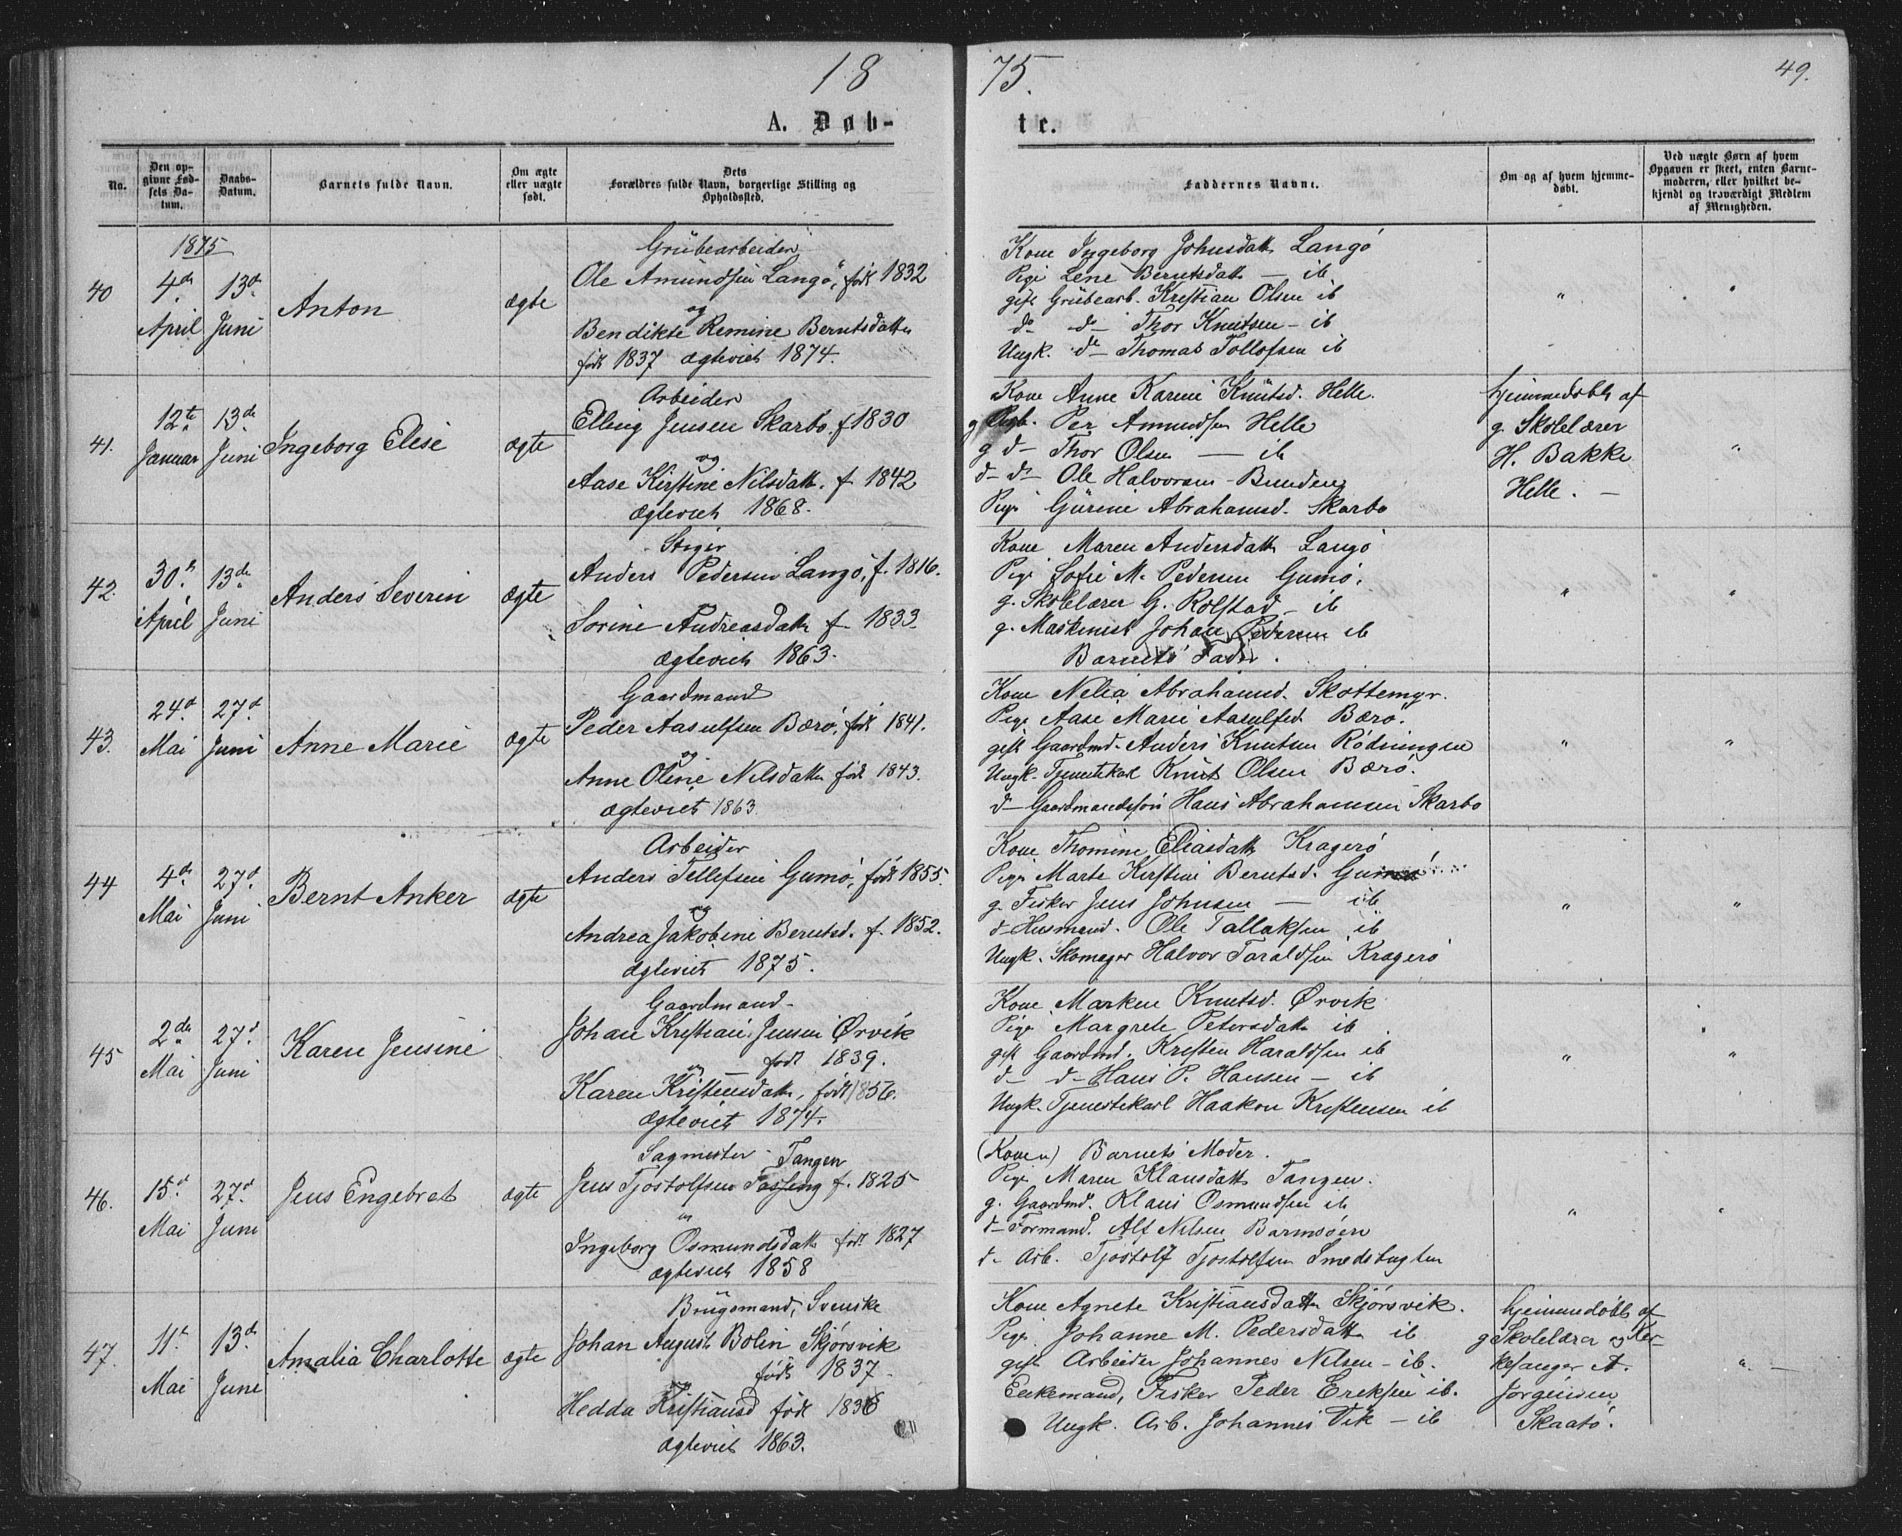 18 75.
49.
A. Døb- te.
No.
Den opgivne Fødsels Datum.
Daabs-Datum.
Barnets fulde Navn.
Om ægte eller uægte født.
Dets Forældres fulde Navn, borgerlige Stilling og Opholdssted.
Faddernes Navne.
Om og af hvem hjemmedøbt.
Ved uægte Børn af hvem Opgaven er skeet, enten Barnemoderen, eller hvilket bekjendt og troværdigt Medlem af Menigheden.
1875
40
4de April
13de Juni
Anton
ægte
Grübearbeider
Ole Amundsen Langø, født 1832
og
Bendikte Remine Berntsdatter
født 1837 ægteviet 1874.
Kone Ingeborg Johnsdatt Langø
Pige Lene Berntsdatt — ib
gift Grübearb. Kristian Olsen ib
do do Thor Knutsen — ib
Ungk. do Thomas Tollofsen ib
41.
12te Januar
13de Juni
Ingeborg Elise
ægte
Arbeider
Elling Jensen Skarbo f 1830
og
Aase Kirstine Nilsdatt. f 1842
Ægteviet 1868.
Kone Anne Karine Knütsd. Helle.
g Arb. Per Amundsen Helle
g d— Thor Olsen — ib
d— d— Ole Halvorsen Bunden
Pige Gürine Abrahamsd. Skarbo
hjemmedøbt af
g. Skolelærer
H. Bakke
Helle. —
42.
30te April
13de Juni
Anders Severin
ægte
Stiger
Anders Pedersen Langø, f. 1816.
Sorine Andreasdatt f 1833.
Ægteviet 1863.
Kone Maren Andersdatt Langø
Pige Sofie M. Pedersen Gumø.
g. Skolelærer G. Rolstad — ib
g. Maskinist Johan Pedersen ib
Barnets Fader.
43.
24de Mai
27de Juni
Anne Marie
ægte
Gaardmand
Peder Aasulfsen Bærø, født 1841.
og
Anne Oline Nilsdatter født 1843.
ægteviet 1863.
Kone Nelia Abrahamsd. Skottemyr.
Pige Aase Marie Aasulfsd Bærø.
gift Gaardmd. Anders Knutsen Rødningen
Ungk. Tjenestekarl Knut Olsen Bærø.
d— Gaardmandssøn Hans Abrahamsen Skarbo
44
4de Mai
27de Juni
Bernt Anker
ægte
Arbeider
Anders Tellefsen Gumø, født 1855.
og
Andrea Jakobine Berntsd. f. 1852.
ægteviet 1875.
Kone Thomine Eliasdatt Kragerø
Pige Marte Kirstine Berntsd. Gumø
g. Fisker Jens Johnsen — ib
d— Husmand. Ole Tallaksen ib
Ungk. Skomager Halvor Taraldsen Kragerø
45
2den Mai
27de Juni
Karen Jensine
Gaardmand
Johan Kristian Jensen Ørvik
født 1839.
Karen Kristensdatt, født 1856.
ægteviet 1874.
Kone Marken Knutsd. Ørvik
Pige Margrete Petersdatt ib
gift Gaardmd. Kristen Haraldsen ib
d— d— Hans P. Hansen — ib
Ungk. Tjenestekarl Haakon Kristensen ib
46.
15de Mai
27de Juni
Jens Engebret
ægte
Sagmester
Tangen
Jens Tjostolfsen f. 1825
Ingeborg Osmundsdatt født 1827
ægteviet 1858
(Konen) Barnets Moder.
Pige Maren Klausdatt Tangen.
g. Gaardmd. Klaus Osmundsen ib
d— Formand. Alf Nilsen
d— Arb. Tjostolf Tjostolfsen Smedsbugten
47.
11te Mai
13de Juni
Amalia Charlotte
ægte
Brügsmand, Svenske
Johan August Bolin Skjørsvik
født 1837.
og
Hedda Kristiansd født 1836
ægteviet 1863.
Kone Agnete Kristiansdatter Skjørsvik.
Pige Johanne M. Pedersdatt ib
gift Arbeider Johannes Nilsen — ib.
Enkemand, Fisker Peder Eriksen ib.
Ungk. Arb. Johannes Vik — ib
hjemmedøbt af
g Skolelærer og Kir-
kesanger A.
Jørgensen
Skaatø.